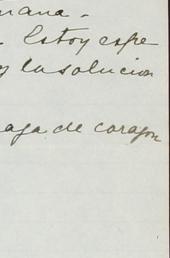 mana.
. Estoy espe
y la solucion
aga de corazon